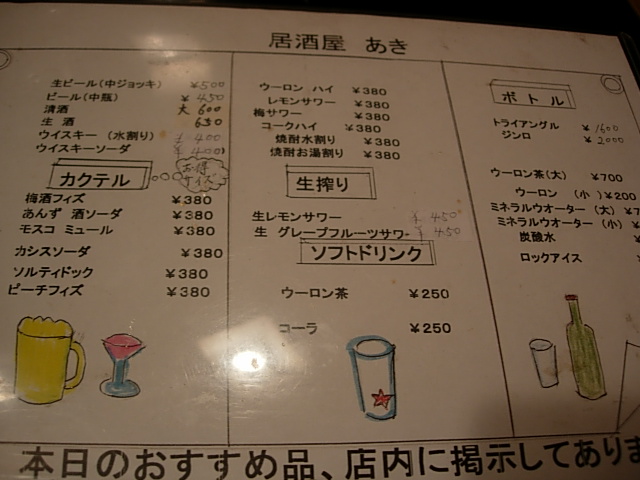 居酒屋 あき
生ビール(中ジョッキ) ¥500
ビール(中瓶) ¥450
清酒 大 600
生酒 650
ウイスキー(水割り) ¥400
ウイスキーソーダ ¥400
カクテル
お得サイズ
梅酒フィズ ¥380
あんず 酒ソーダ ¥380
モスコ ミュール ¥380
カシスソーダ ¥380
ソルティドック ¥380
ピーチフィズ ¥380
ウーロン ハイ ¥380
レモンサワー ¥380
梅サワー ¥380
コークハイ ¥380
焼酎水割り ¥380
焼酎お湯割り ¥380
生搾り
生レモンサワー ¥450
生 グレープフルーツサワー ¥450
ソフトドリンク
ウーロン茶 ¥250
コーラ ¥250
ボトル
トライアングル ¥1600
ジンロ ¥2000
ウーロン茶(大) ¥700
ウーロン (小) ¥200
ミネラルウオーター(大) ¥7
ミネラルウオーター(小) ¥
炭酸水
ロックアイス
本日のおすすめ品、店内に掲示してありま